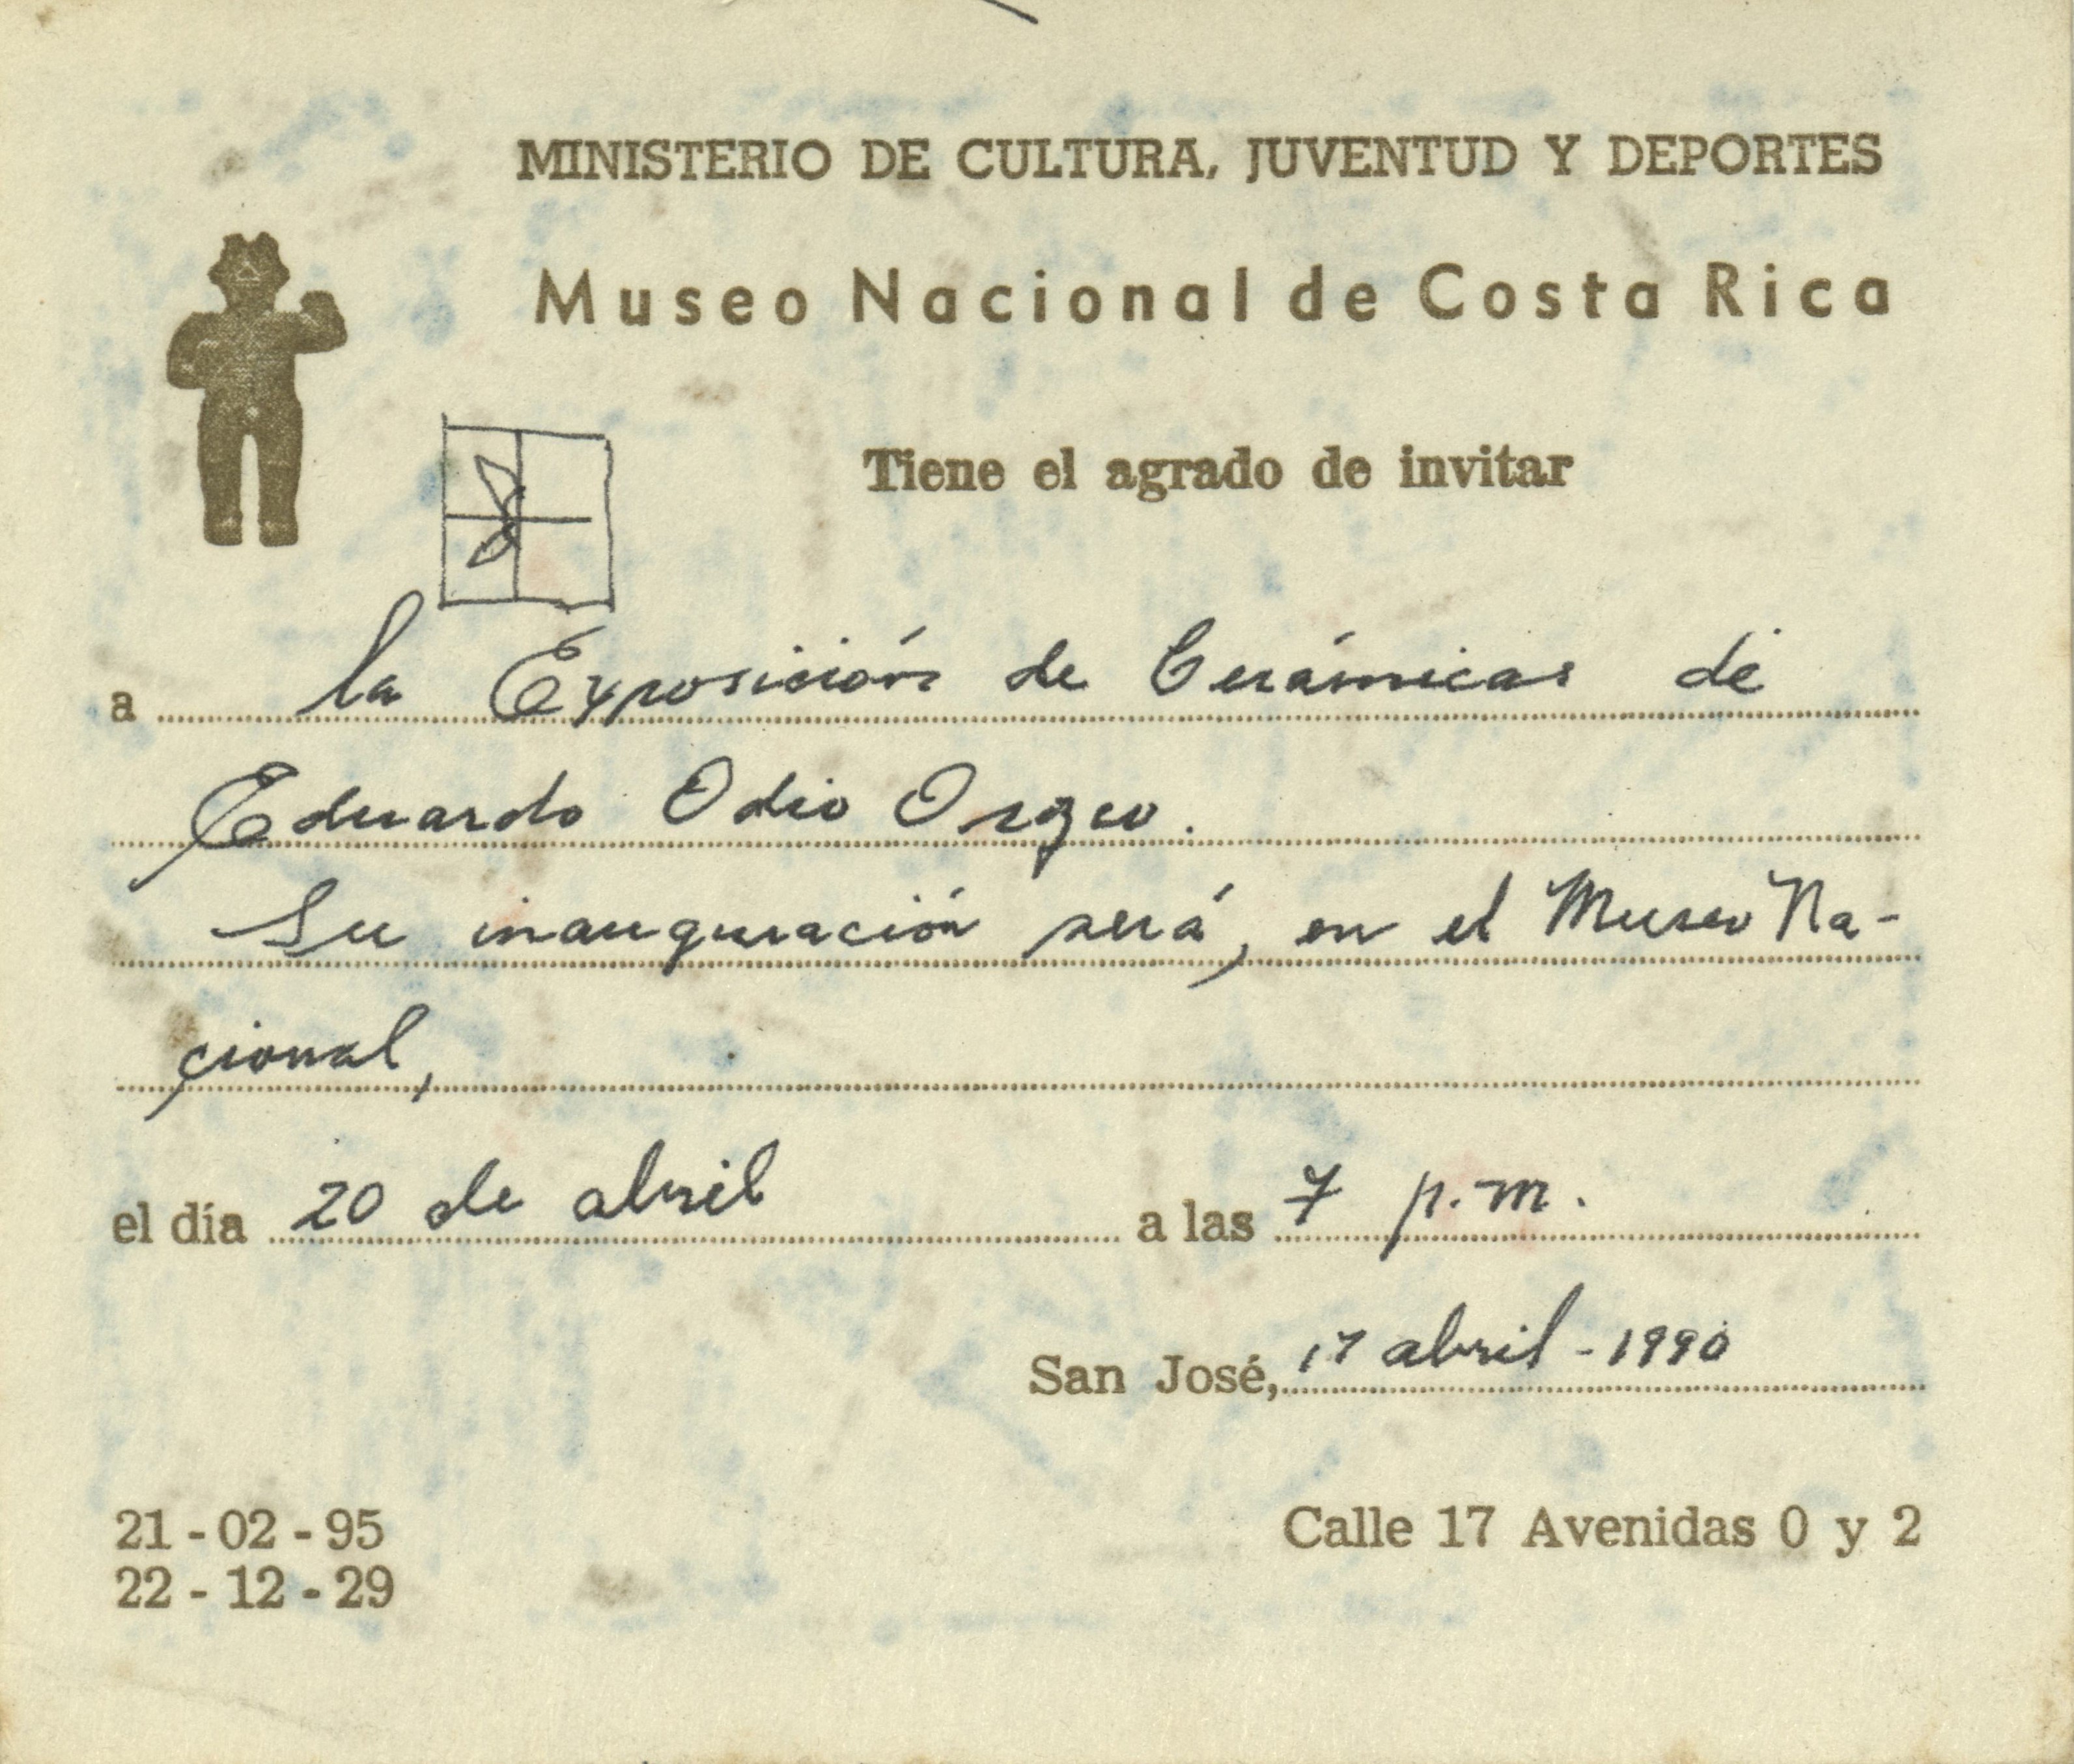 MINISTERIO DE CULTURA, JUVENTUD Y DEPORTES
Museo Nacional de Costa Rica
Tiene el agrado de invitar
a la Exposición de Cerámicas de
Eduardo Odio Orozco.
Su inauguración será, en el Museo Na-
cional,
el día 20 de abril a las 7 p.m.
San José, 17 abril - 1990
21 - 02 - 95
22 - 12 - 29
Calle 17 Avenidas 0 y 2